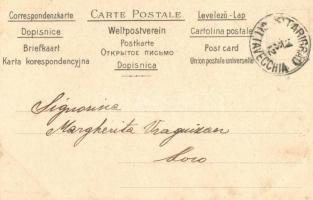 Correspondenzkarte CARTE POSTALE Levelező-Lap
Dopisnice Weltpostverein Cartolina postale
Briefkaart Postkarte Post card
Karta korespondencyjna ОТКРЫТОЕ ПИСЬМО Union postale universelle
Dopisnica
CITTAVECCHIA
Signorina
Margherita
Loco